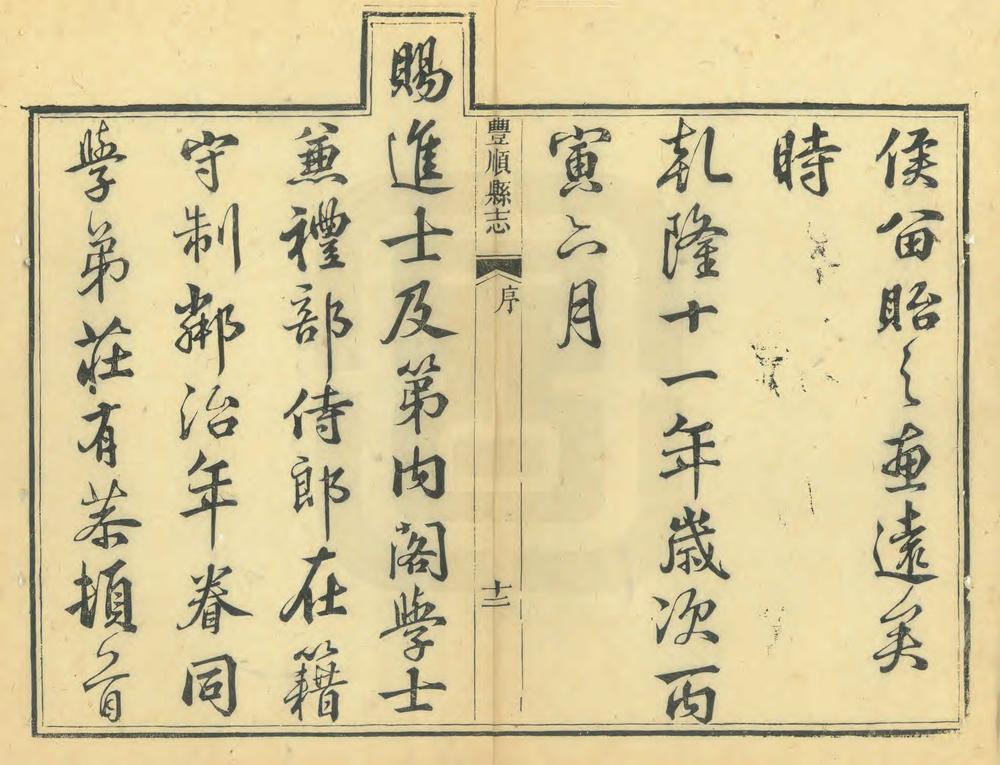 侯留貽之惠遠矣
時
乾隆十一年歲次丙
寅六月
豐順縣志
序
十二
賜進士及第内閣學士
兼禮部侍郎在籍
守制鄰治年眷同
學弟莊有恭頓首